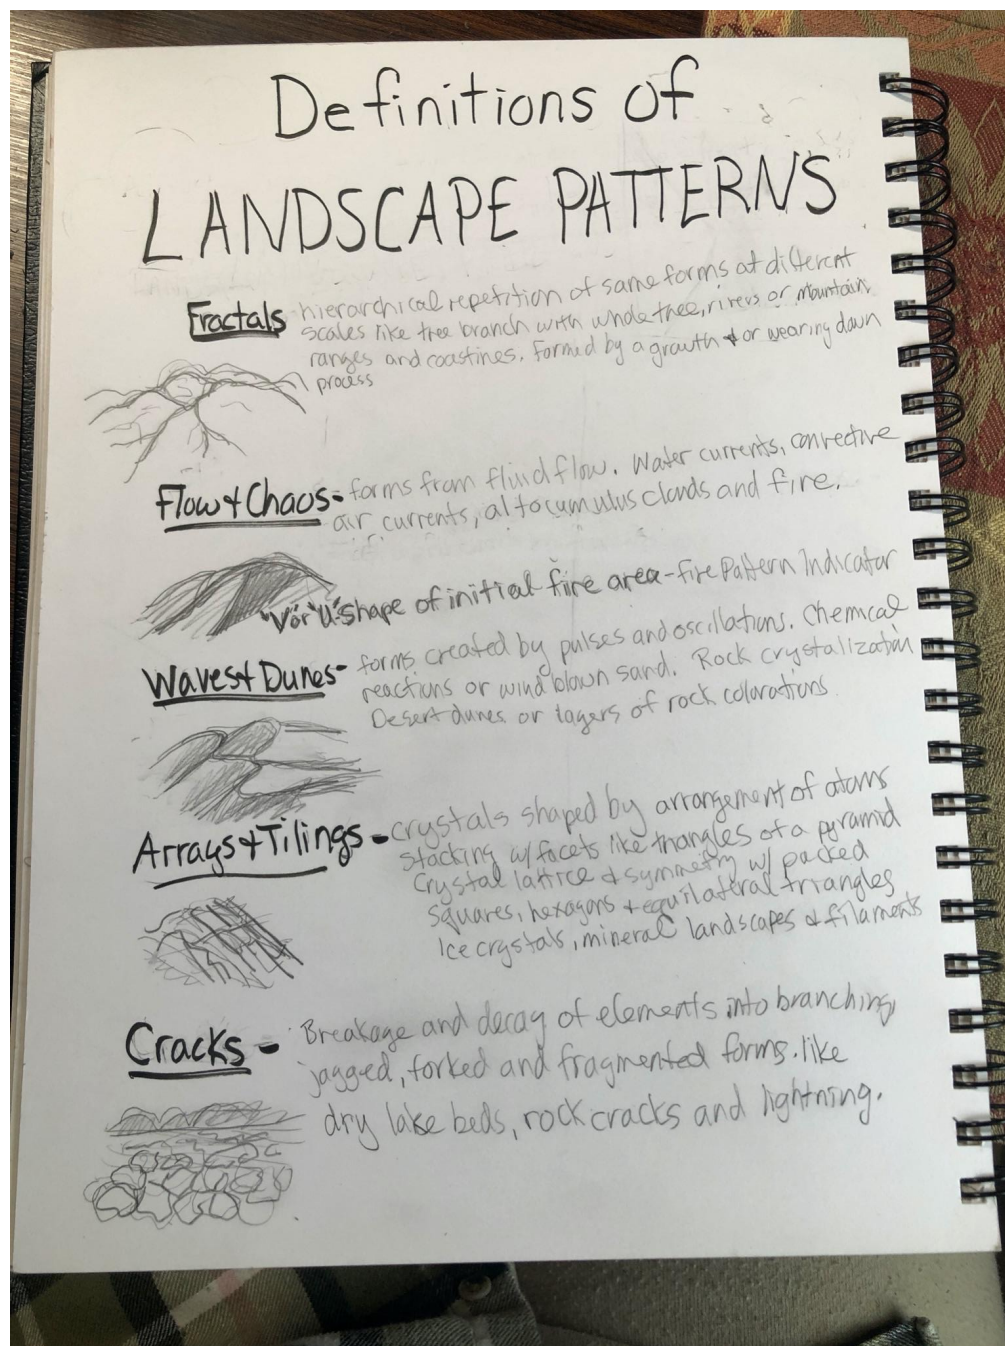 Definitions of
LANDSCAPE PATTERNS
Fractals - hierarchical repetition of same forms at different
scales like tree branch with whole tree, rivers or mountain
ranges and coastines. formed by a growth + or wearing down
process
Flow + Chaos - forms from fluid flow. Water currents, convective
air currents, altocumulus clouds and fire.
"V or "U" shape of initial fire area - fire Pattern Indicator
Waves + Dunes - forms created by pulses and oscillations. Chemical
reactions or wind blown sand. Rock crystalization
Desert dunes or layers of rock colorations
Arrays + Tilings - crystals shaped by arrangement of atoms
stacking w/ facets like triangles of a pyramid
Crystal lattice + symmetry w/ packed
squares, hexagons + equilateral triangles
Ice crystals, mineral landscapes + filaments
Cracks - Breakage and decay of elements into branching,
jagged, forked and fragmented forms. like
dry lake beds, rock cracks and lightning.